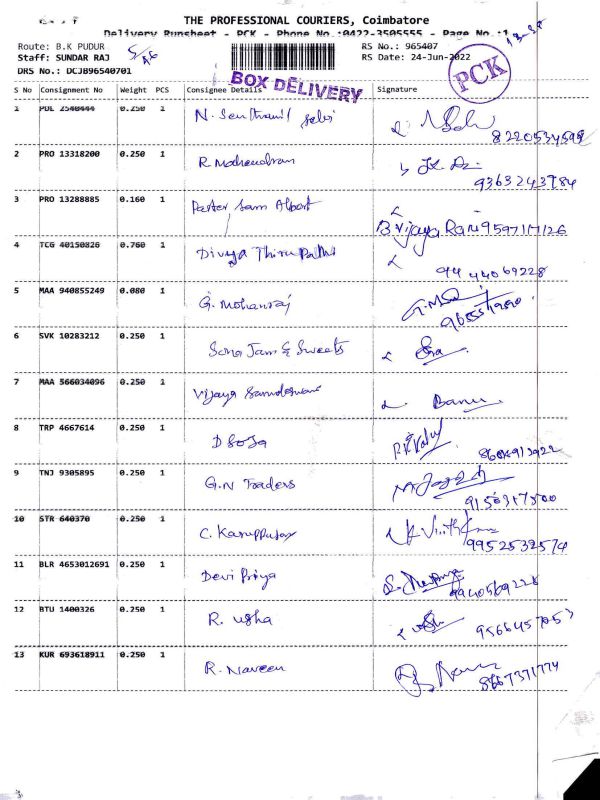 THE PROFESSIONAL COURIERS, Coimbatore
Delivery Runsheet - PCK - Phone No.:0422-3505555 - Page No.:1
Route: B.K PUDUR RS No.: 965407
Staff: SUNDAR RAJ RS Date: 24-Jun-2022
DRS No.: DCJB96540701
BOX DELIVERY
PCK
S No Consignment No Weight PCS Consignee Details Signature
1 PDL 2540444 0.250 1 N. Senthamil Selvi
8220534599
2 PRO 13318200 0.250 1 R Mahendran
9363243784
3 PRO 13288885 0.160 1 Paster Sam Albert
B Vijaya Rani 9597117126
4 TCG 40150826 0.760 1 Divya Thirupathi
94 44069228
5 MAA 940855249 0.080 1 G. Mohanraj
6 SVK 10283212 0.250 1 Sona Jam & Sweets
7 MAA 566034096 0.250 1 Vijaya Banu
8 TRP 4667614 0.250 1 D SoJa
9 TNJ 9305895 0.250 1 G.N Traders
9150317500
10 STR 640370 0.250 1 C. Karuppusay
9952532574
11 BLR 4653012691 0.250 1 Devi Priya
9940569228
12 BTU 1400326 0.250 1 R. usha
9566457053
13 KUR 693618911 0.250 1 R. Naveen
8667371774